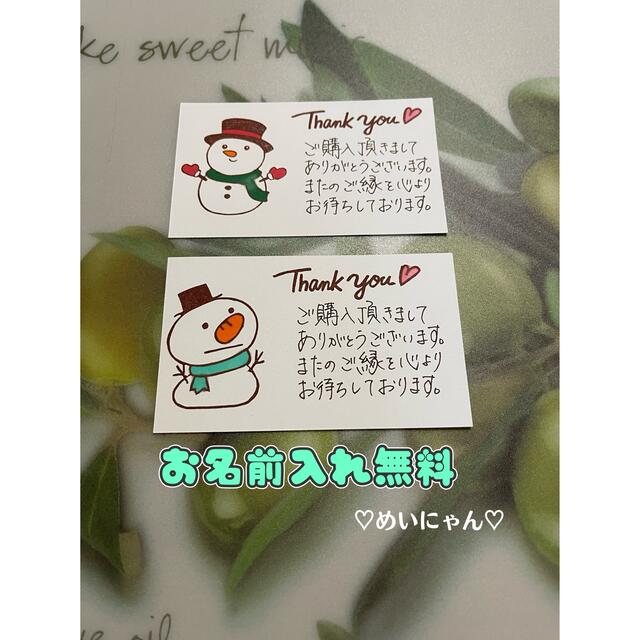 ke sweet m
Thank you♡
ご購入頂きまして
ありがとうございます。
またのご縁を心より
お待ちしております。
Thank you♡
ご購入頂きまして
ありがとうございます。
またのご縁を心より
お待ちしております。
お名前入れ無料
♡めいにゃん♡